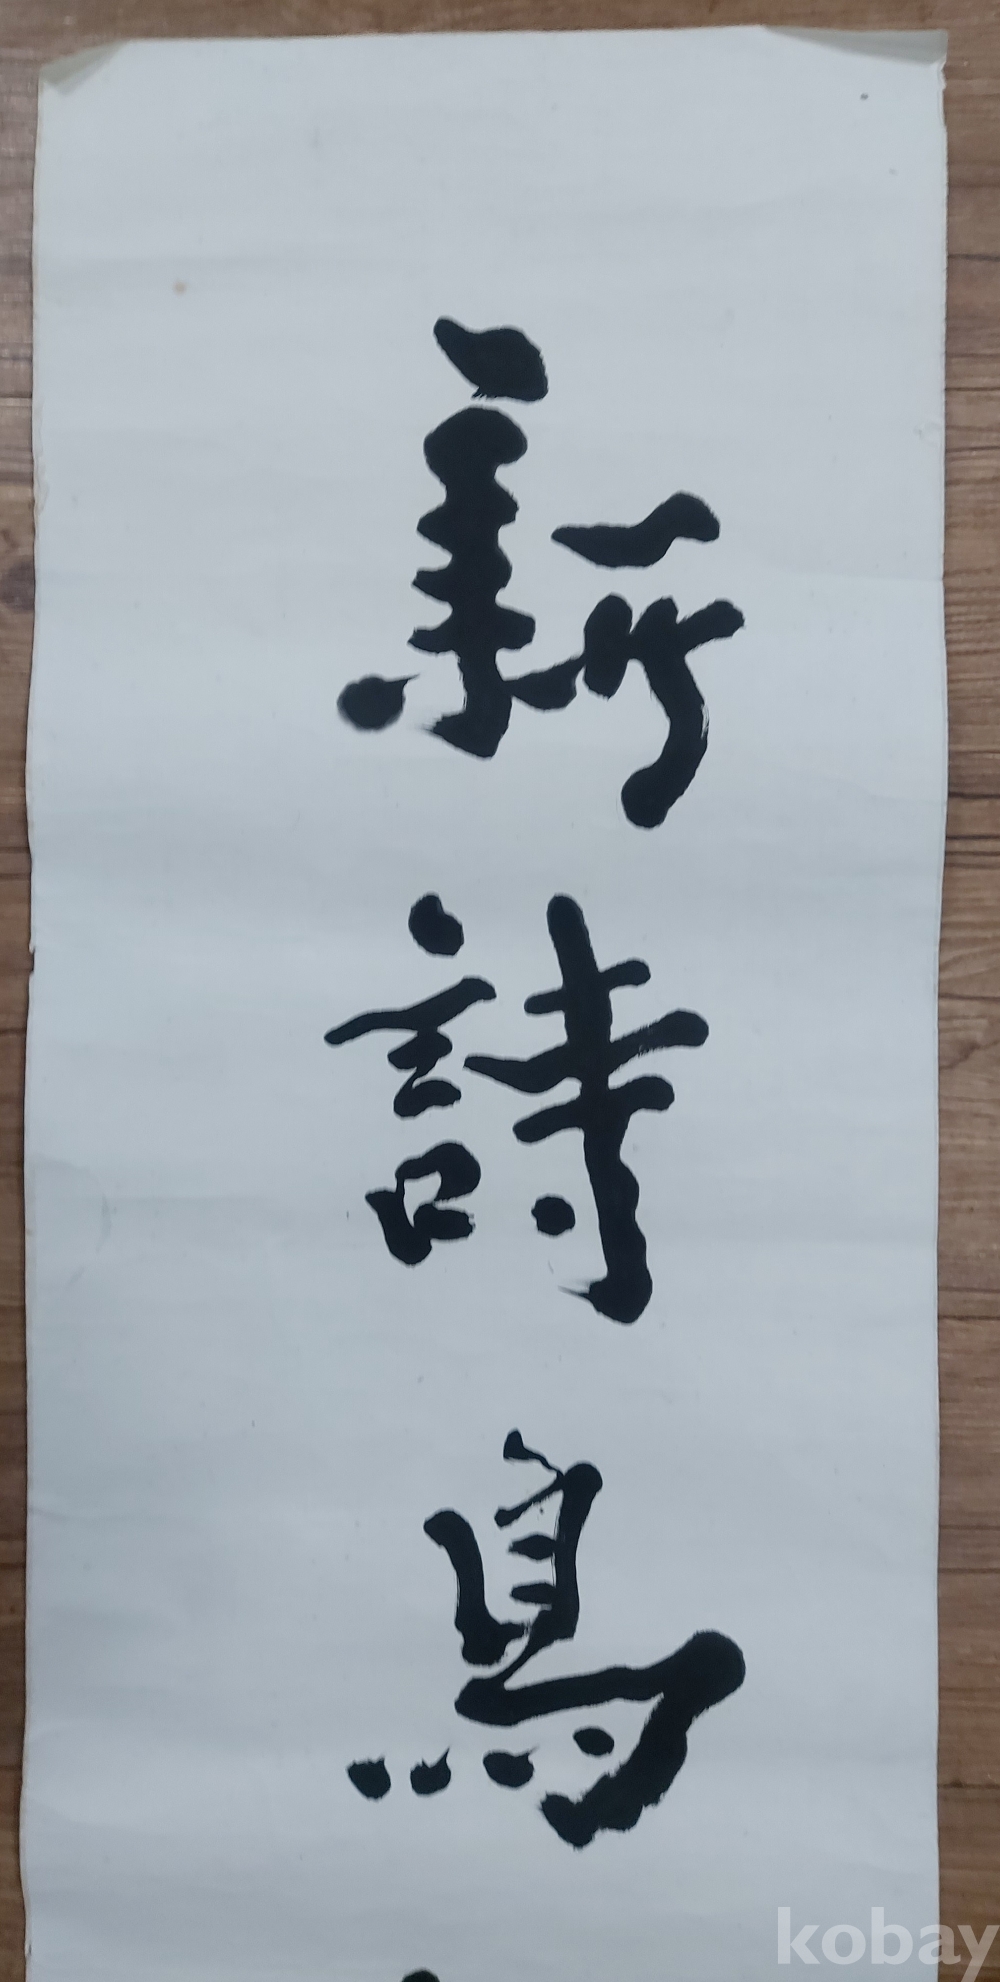 新詩鳥
kobay